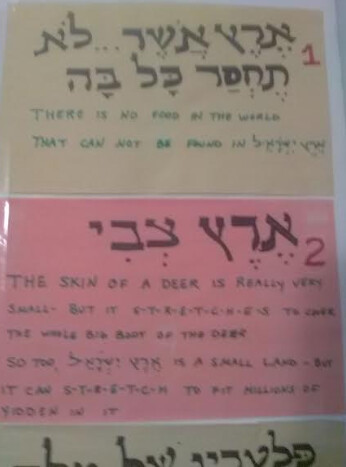 אֶרֶץ אֲשֶׁר...לֹא
תֶחְסַר כָּל בָּהּ
1
THERE IS NO FOOD IN THE WORLD
THAT CAN NOT BE FOUND IN אֶרֶץ יִשְׂרָאֵל
אֶרֶץ צְבִי
2
THE SKIN OF A DEER IS REALLY VERY
SMALL - BUT IT S-T-R-E-T-C-H-E-S TO COVER
THE WHOLE BIG BODY OF THE DEER
SO TOO, אֶרֶץ יִשְׂרָאֵל IS A SMALL LAND - BUT
IT CAN S-T-R-E-T-C-H TO FIT MILLIONS OF
YIDDEN IN IT
פלטרין של מלך